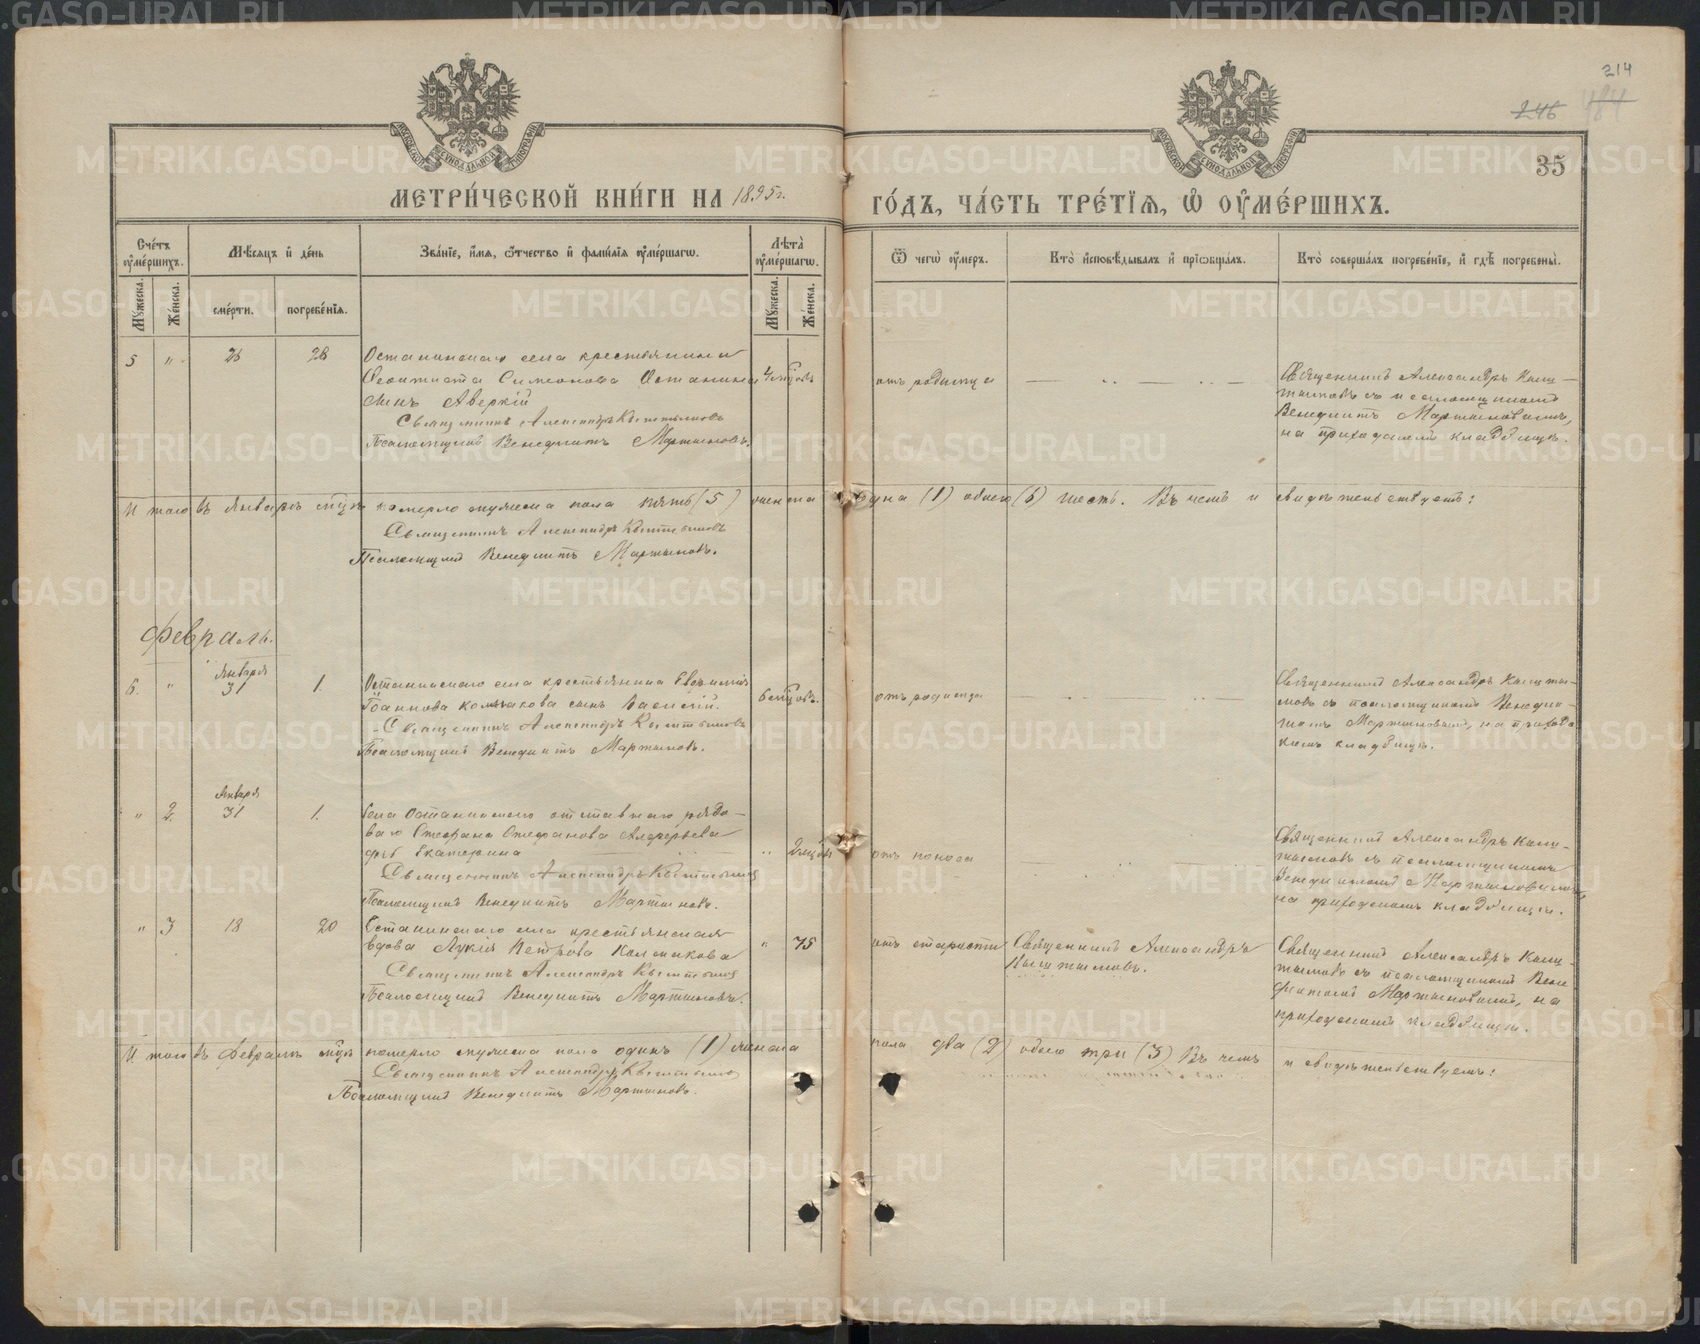 214
246 484
35
МОСКОВСКОЙ СУНОДАЛЬНОЙ ТИПОГРАФІИ
МОСКОВСКОЙ СУНОДАЛЬНОЙ ТИПОГРАФІИ
МЕТРИ́ЧЕСКОЙ КНИ́ГИ НА 1895 г.
ГО́ДЪ, ЧА́СТЬ ТРЕ́ТІѦ, Ѡ҆ ОУ҆МЕ́РШИХЪ.
Сче́тъ оу҆ме́ршихъ.
Мѣ́сѧцъ и҆ де́нь
Зва́нїе, и҆́мѧ, ѻ҆́тчество и҆ фами́лїѧ оу҆ме́ршагѡ.
Лѣ́та оу҆ме́ршагѡ.
Ѿ чегѡ̀ оу҆́меръ.
Кто̀ и҆сповѣ́дывалъ и҆ прїѡбща́лъ.
Кто̀ соверша́лъ погребе́нїе, и҆ гдѣ̀ погребены̀.
Му́жеска. Же́нска.
сме́рти.
погребе́нїѧ.
Му́жеска. Же́нска.
5 " 26 28
Останинскаго села крестьянина
Феоктиста Симеонова Останина
сынъ Аверкій
Священникъ Александръ Кыштымовъ
Псаломщикъ Венедиктъ Мартыновъ.
4 мѣсцовъ
отъ родимца
Священникъ Александръ Кыш-
тымовъ съ псаломщикомъ
Венедиктъ Мартыновымъ,
на приходскомъ кладбищѣ.
Итого въ Январѣ мцѣ померло мужеска пола пять (5) женска одна (1) обоего (6) шесть. Въ чемъ и свидѣтельствуемъ:
Священникъ Александръ Кыштымовъ
Псаломщикъ Венедиктъ Мартыновъ.
Февраль.
6. " Января 31 1.
Останинскаго села крестьянина Евфимія
Іоаннова Колмакова сынъ Василій.
Священникъ Александръ Кыштымовъ
Псаломщикъ Венедиктъ Мартыновъ.
6 мѣсцовъ.
отъ родимца
Священникъ Александръ Кышты-
мовъ съ псаломщикомъ Венеди-
ктомъ Мартыновымъ, на приход-
скомъ кладбищѣ.
" 2. Января 31 1.
Села Останинскаго отставнаго рядо-
ваго Стефана Стефанова Алферьева
дчь Екатерина
Священникъ Александръ Кыштымовъ
Псаломщикъ Венедиктъ Мартыновъ.
" 2 мцовъ
отъ поноса
Священникъ Александръ Кыш-
тымовъ съ псаломщикомъ
Венедиктомъ Мартыновымъ
на приходскомъ кладбищѣ.
" 3 18 20
Останинскаго села крестьянская
вдова Лукія Петрова Колмакова
Священникъ Александръ Кыштымовъ
Псаломщикъ Венедиктъ Мартыновъ.
" 75
отъ старости
Священникъ Александръ
Кыштымовъ.
Священникъ Александръ Кыш-
тымовъ съ псаломщикомъ Вене-
диктомъ Мартыновымъ, на
приходскомъ кладбищѣ.
Итого въ Февралѣ мцѣ померло мужеска пола одинъ (1) женска пола два (2) обоего три (3) Въ чемъ и свидѣтельствуемъ:
Священникъ Александръ Кыштымовъ
Псаломщикъ Венедиктъ Мартыновъ.
METRIKI.GASO-URAL.RU